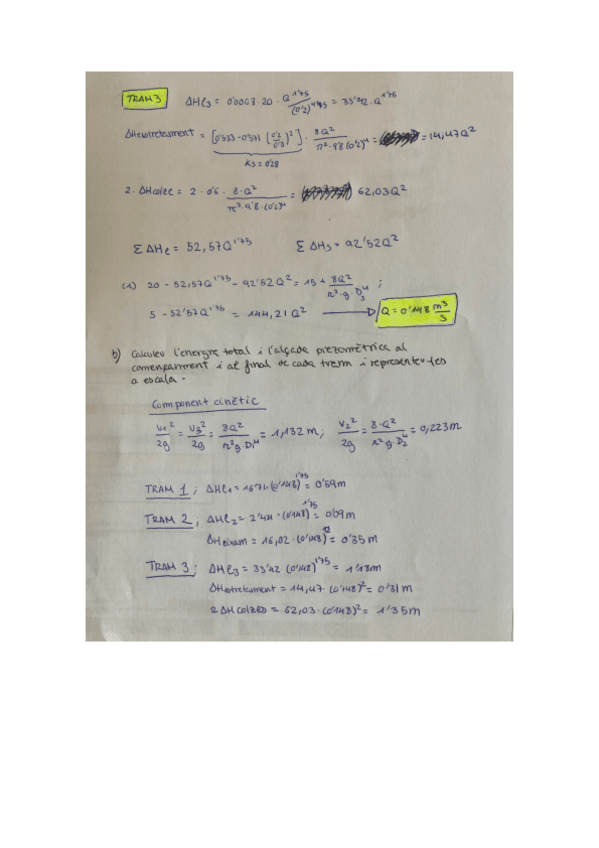 TRAM 3 ΔHℓ₃ = 0'0063·20 · Q^1'75/(0'2)^4'75 = 33'42·Q^1'75
ΔHestretament = [0'533-0'571 (0'2/0'3)²] · 8Q²/π²·9'8(0'2)⁴ = = 14,47Q²
K3 = 0'28
2·ΔHcolze = 2·0'6 · 8·Q²/π²·9'8·(0'2)⁴ = 62,03Q²
ΣΔHℓ = 52,57Q^1'75 ΣΔHs = 92'52Q²
(1) 20 - 52,57Q^1'75 - 92'52Q² = 15 + 8Q²/π²·g·D₃⁴ ;
5 - 52'57Q^1'75 = 144,21Q² → Q = 0'148 m³/s
b) Calculeu l'energia total i l'alçada piezomètrica al
començament i al final de cada tram i representeu-les
a escala.
Component cinètic
V₁²/2g = V₃²/2g = 8Q²/π²g·D₁⁴ = 1,132 m; V₂²/2g = 8·Q²/π²g·D₂⁴ = 0,223m
TRAM 1 ; ΔHℓ₁ = 16'71·(0'148)^1'75 = 0'59m
TRAM 2 ; ΔHℓ₂ = 2'44·(0'148)^1'75 = 0'09m
ΔHeixam = 16,02·(0'148)² = 0'35m
TRAM 3 : ΔHℓ₃ = 33'42 (0'148)^1'75 = 1'18m
ΔHestretament = 14,47·(0'148)² = 0'31m
2ΔHcolzes = 62,03·(0'148)² = 1'35m